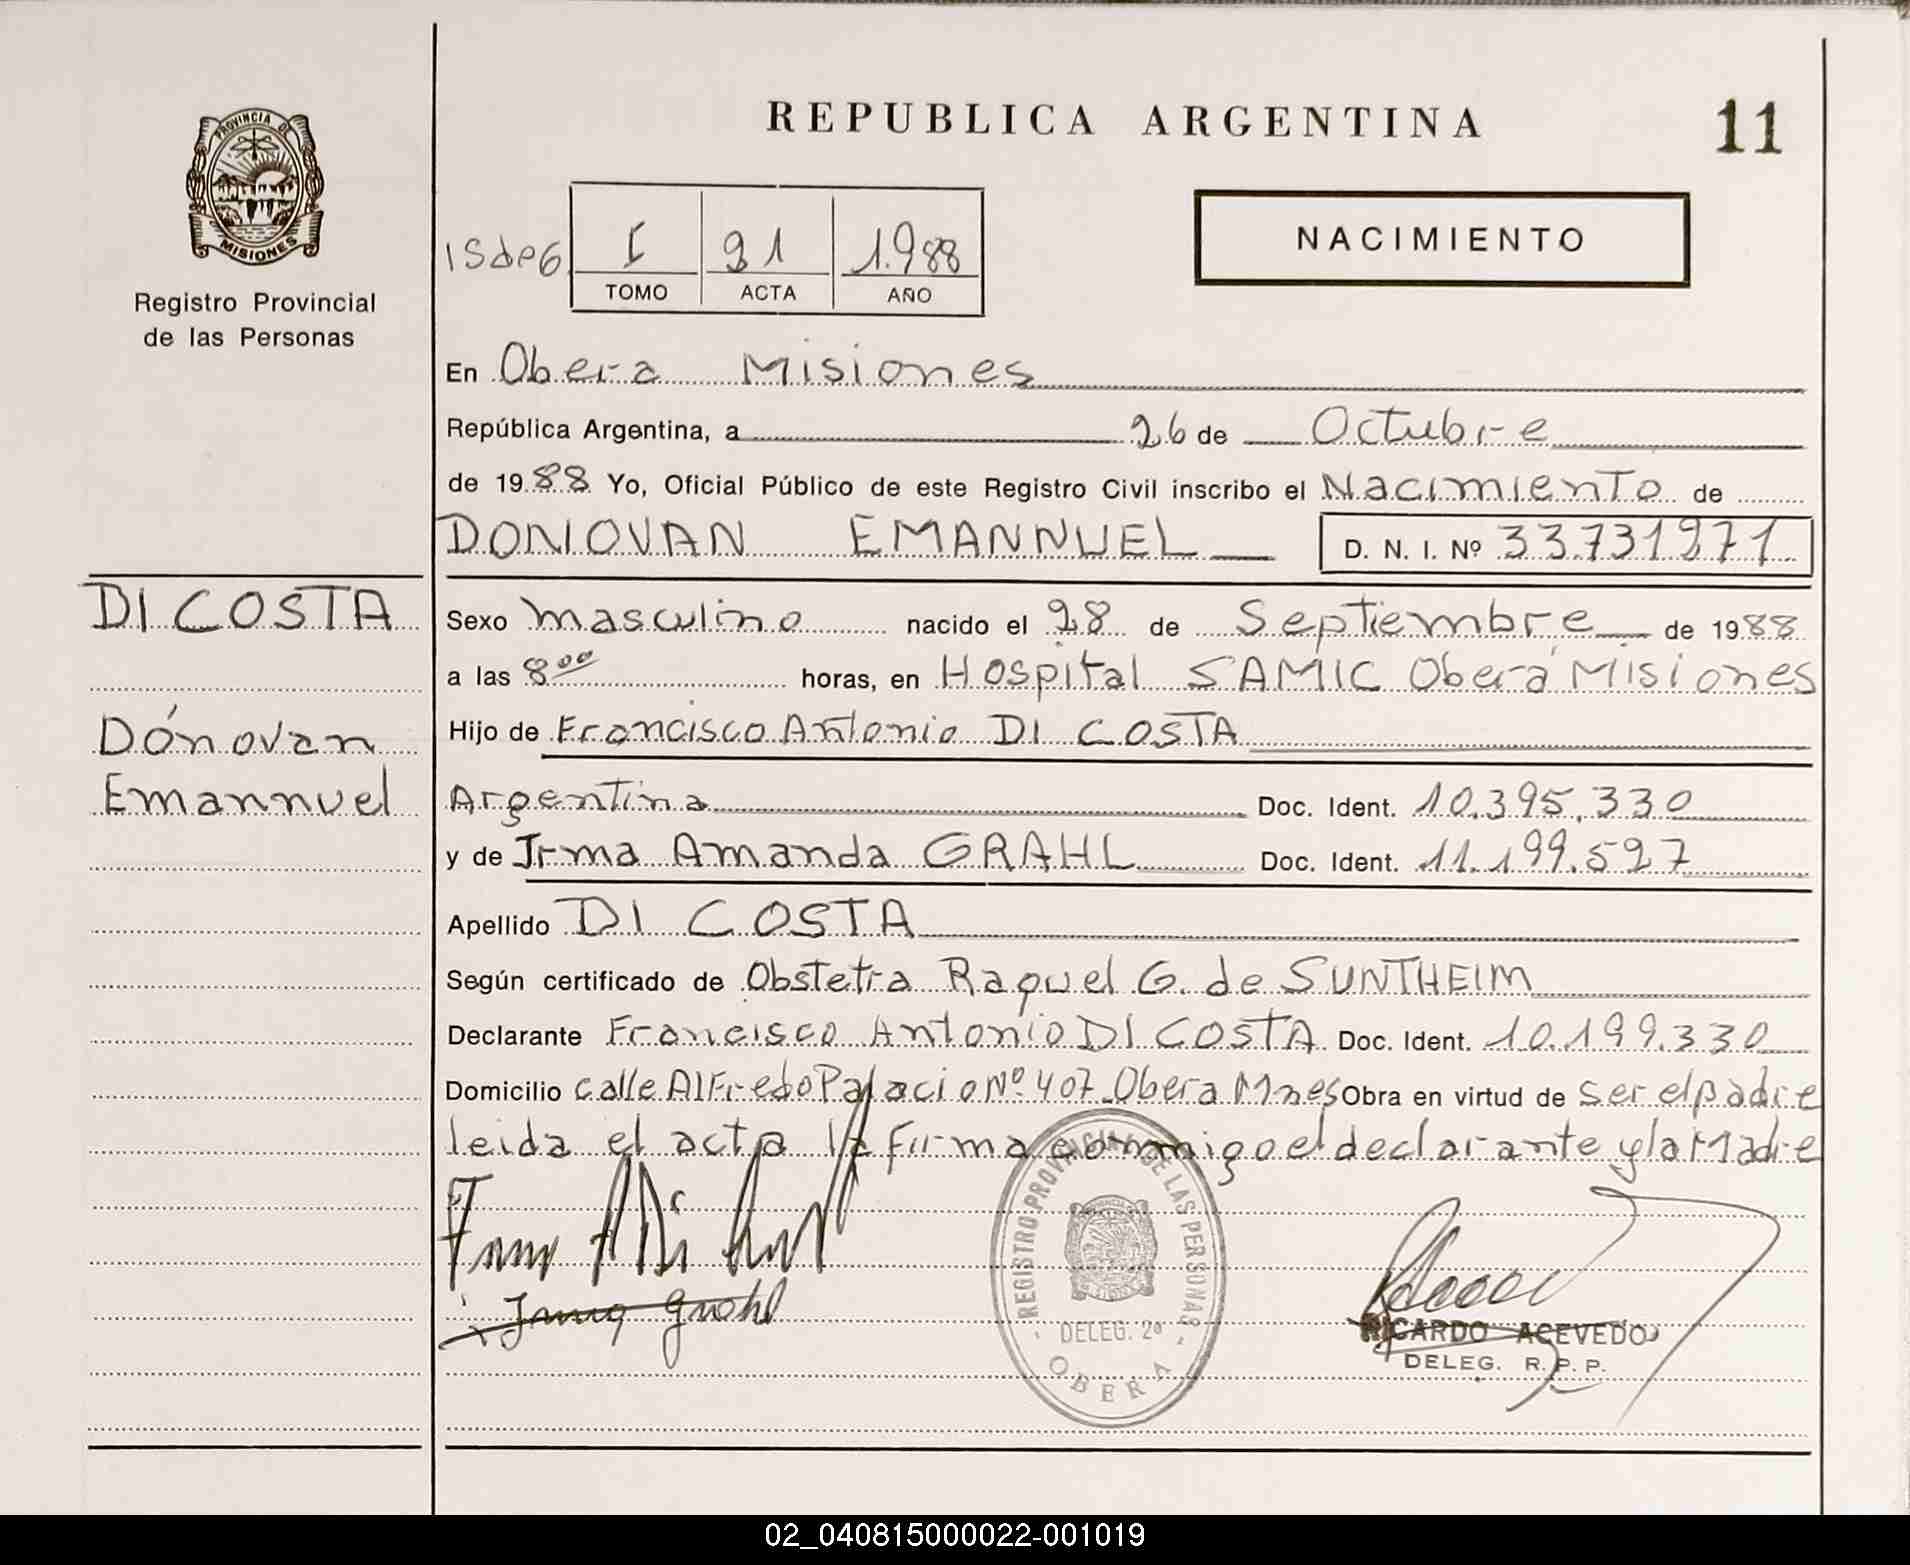 PROVINCIA DE
MISIONES
Registro Provincial
de las Personas
REPUBLICA ARGENTINA
11
NACIMIENTO
I 91 1.988
TOMO ACTA AÑO
En Obera Misiones
República Argentina, a 26 de Octubre
de 1988 Yo, Oficial Público de este Registro Civil inscribo el Nacimiento de
DONOVAN EMANNUEL D. N. I. Nº 33.731.971
DI COSTA
Dónovan
Emannuel
Sexo masculino nacido el 28 de Septiembre de 1988
a las 8⁰⁰ horas, en Hospital SAMIC Oberá Misiones
Hijo de Francisco Antonio DI COSTA
Argentina Doc. Ident. 10.395.330
y de Irma Amanda GRAHL Doc. Ident. 11.199.527
Apellido DI COSTA
Según certificado de Obstetra Raquel G. de SUNTHEIM
Declarante Francisco Antonio DI COSTA Doc. Ident. 10.199.330
Domicilio calle Alfredo Palacio Nº 407 Obera Mnes Obra en virtud de ser el padre
leida el acta la firma conmigo el declarante y la Madre
Irma Grahl
REGISTRO PROVINCIAL DE LAS PERSONAS
DELEG. 2ª
OBERA
RICARDO ACEVEDO
DELEG. R. P. P.
02_040815000022-001019